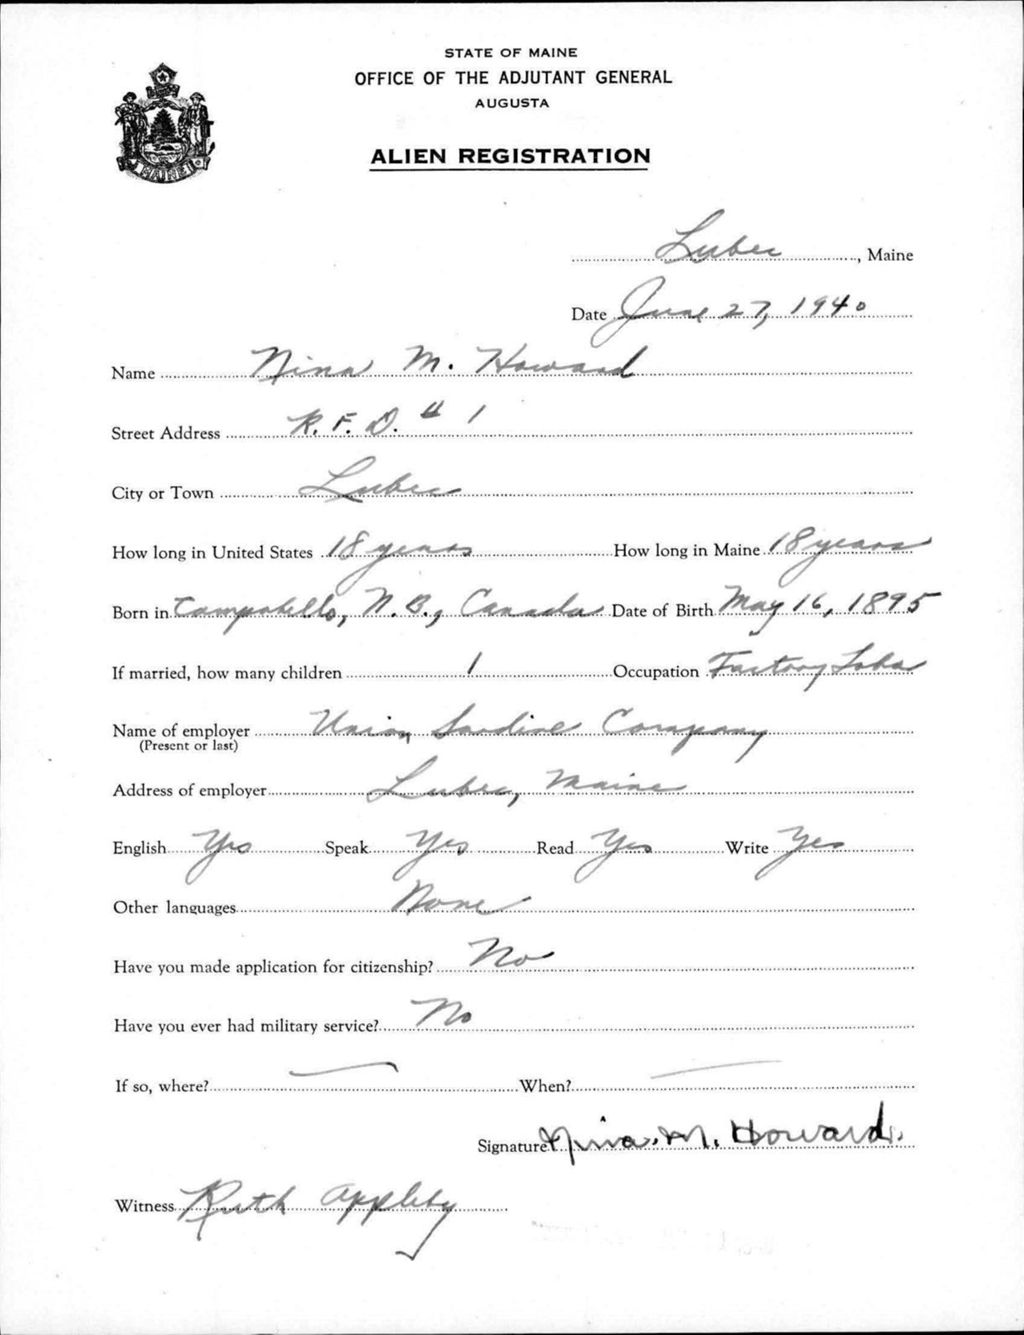 STATE OF MAINE
OFFICE OF THE ADJUTANT GENERAL
AUGUSTA
MAINE
ALIEN REGISTRATION
Lubec, Maine
Date June 27, 1940
Name Nina M. Howard
Street Address R.F.D. # 1
City or Town Lubec
How long in United States 18 years How long in Maine 18 years
Born in Campobello, N.B., Canada Date of Birth May 16, 1895
If married, how many children 1 Occupation Factory
Name of employer Union Sardine Company
(Present or last)
Address of employer Lubec, Maine
English Yes Speak Yes Read Yes Write Yes
Other languages None
Have you made application for citizenship? No
Have you ever had military service? No
If so, where? — When? —
Signature Nina. M. Howard.
Witness Ruth Appleby